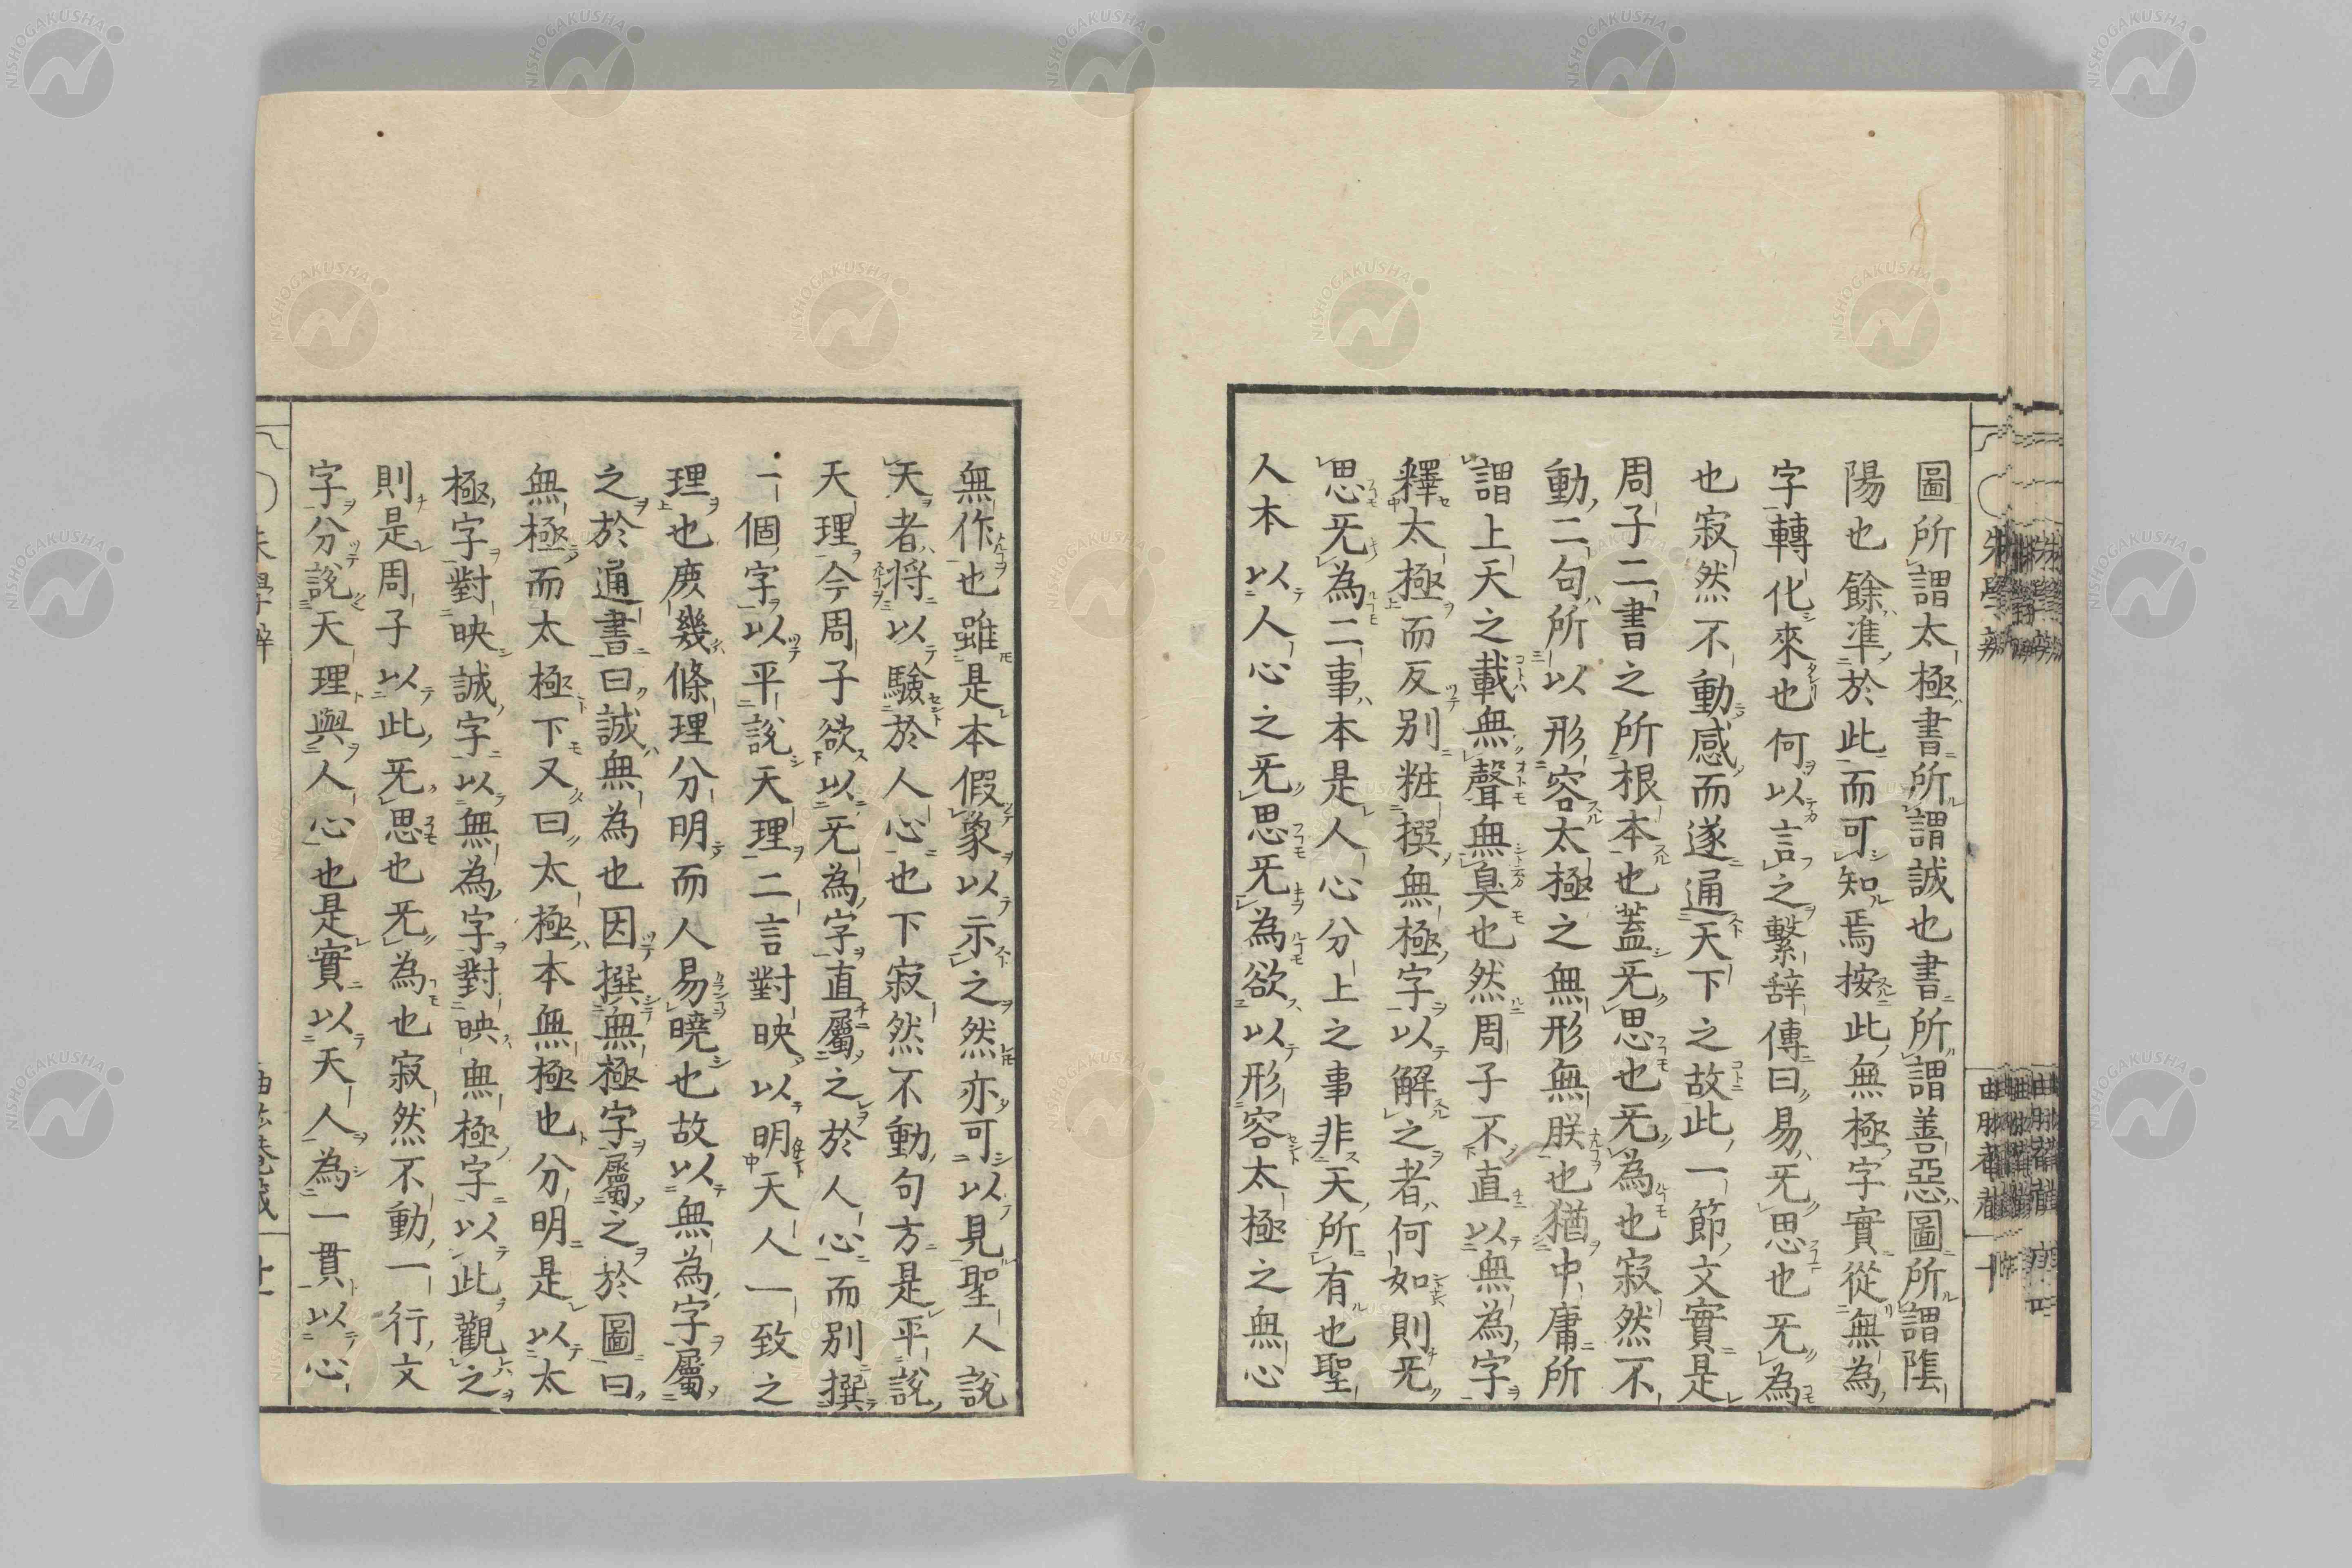 圖所謂太極書所謂誠也書所謂善惡圖所謂陰
陽也餘準於此而可知焉按此無極字實從無為
字轉化來也何以言之繫辭傳曰易无思也无為
也寂然不動感而遂通天下之故此一節文實是
周子二書之所根本也蓋无思也无為也寂然不
動二句所以形容太極之無形無朕也猶中庸所
謂上天之載無聲無臭也然周子不直以無為字
釋太極而反別粧撰無極字以解之者何如則无
思无為二事本是人心分上之事非天所有也聖
人本以人心之无思无為欲以形容太極之無心
無作也雖是本假象以示之然亦可以見聖人說
天者將以驗於人心也下寂然不動句方是平說
天理今周子欲以无為字直屬之於人心而別撰
一個字以平說天理二言對映以明天人一致之
理也庶幾條理分明而人易曉也故以無為字屬
之於通書曰誠無為也因撰無極字屬之於圖曰
無極而太極下又曰太極本無極也分明是以太
極字對映誠字以無為字對映無極字以此觀之
則是周子以此无思也无為也寂然不動一行文
字分說天理與人心也是實以天人為一貫以心